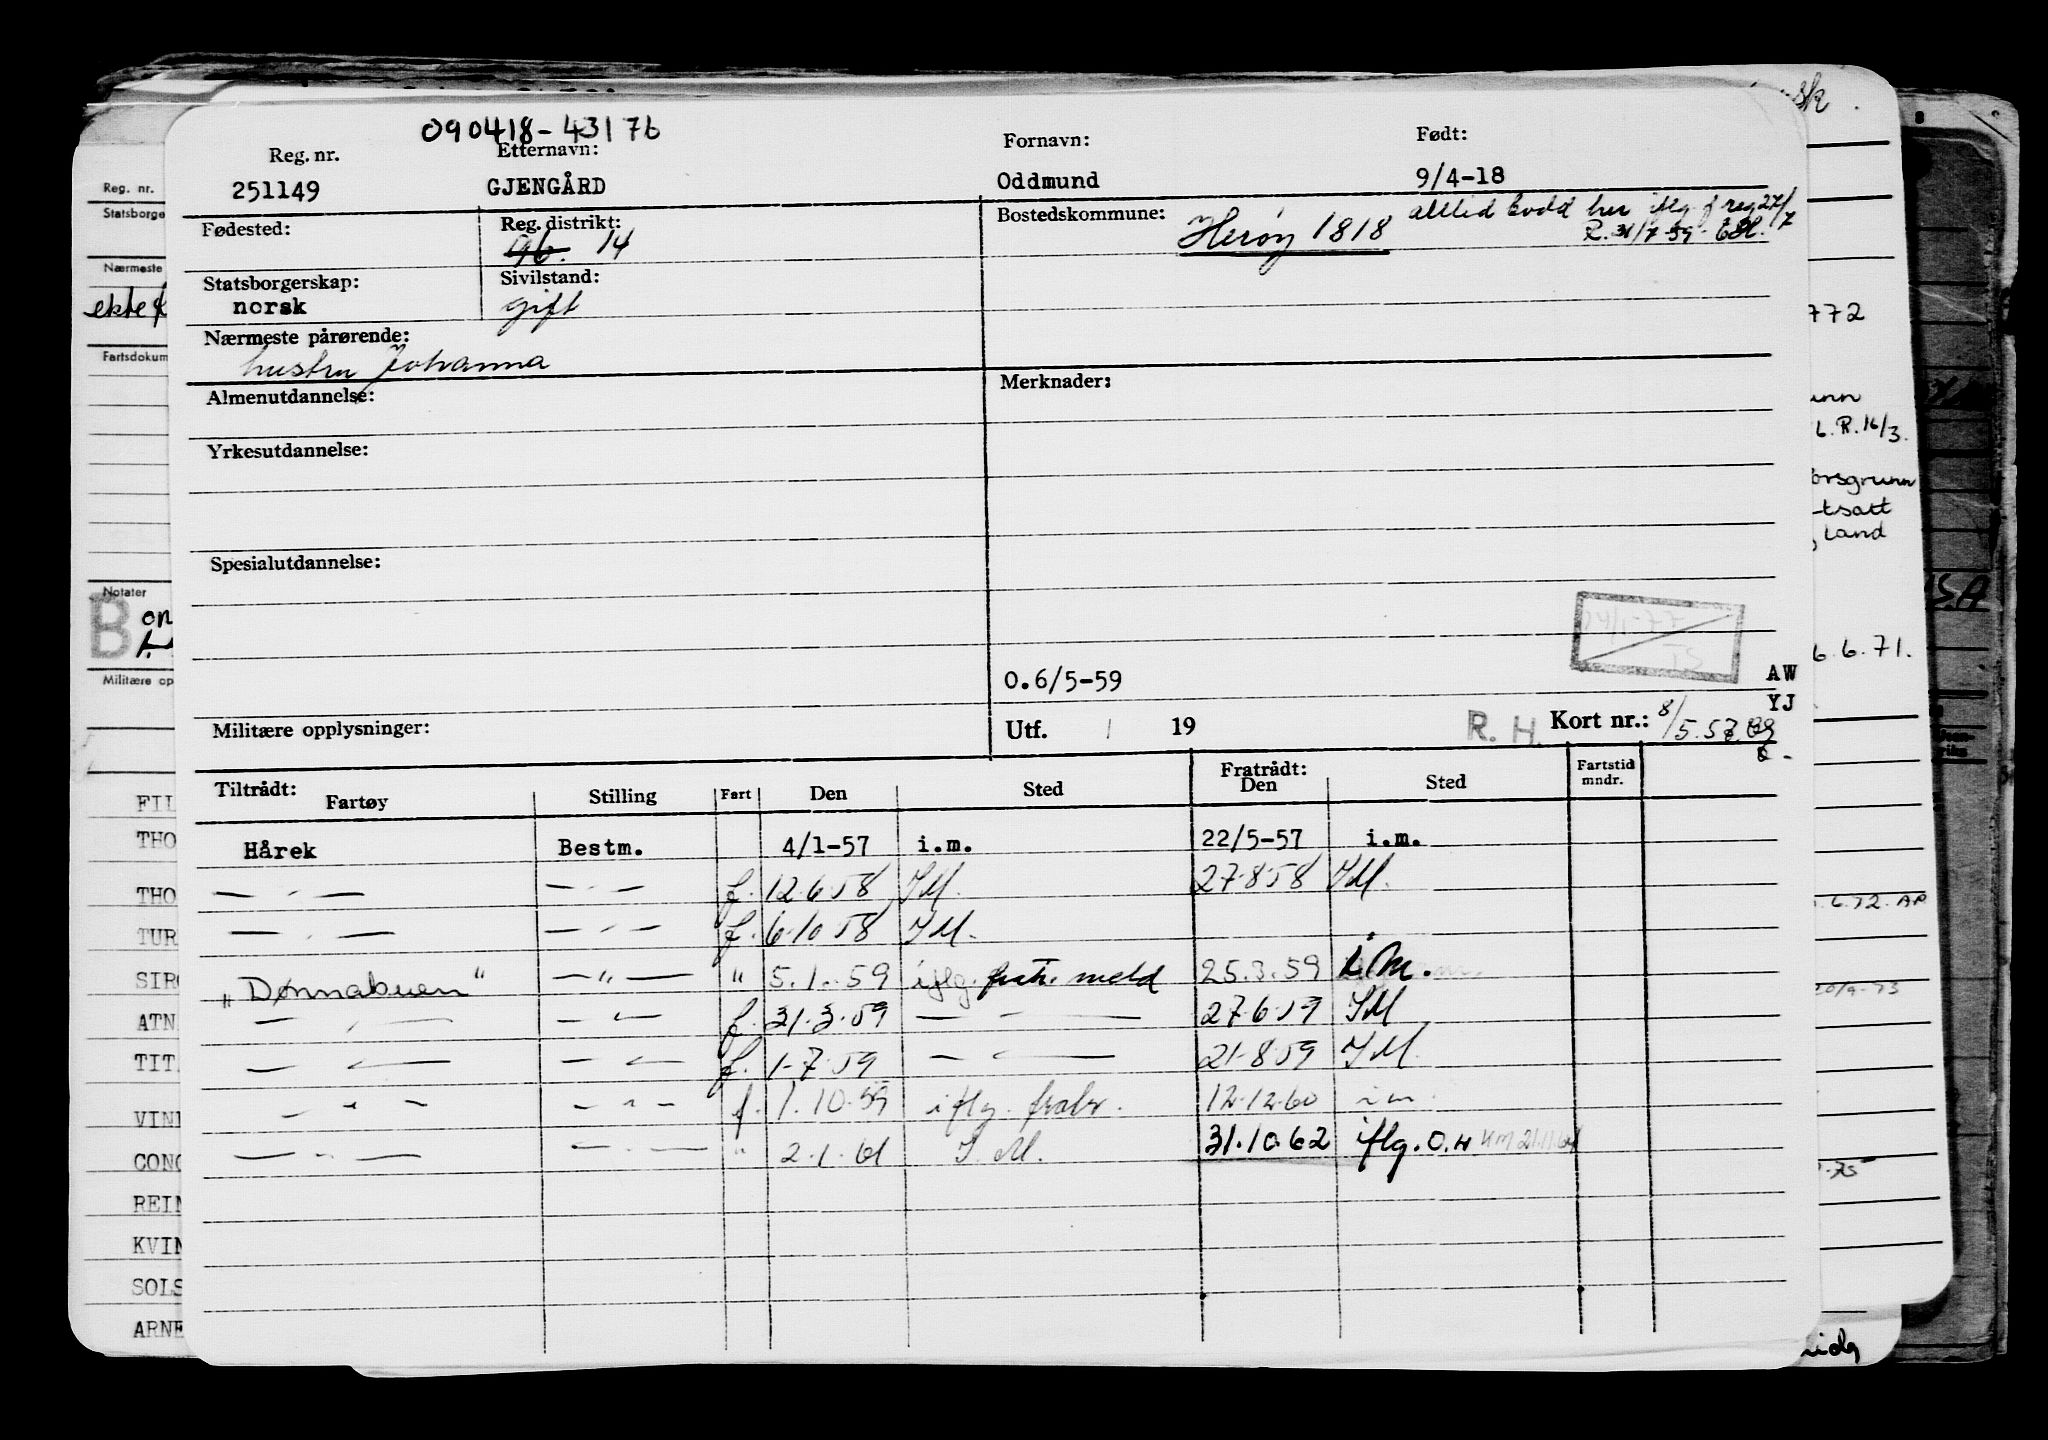 090418-43176
Reg. nr. Etternavn: Fornavn: Født:
251149 GJENGÅRD Oddmund 9/4-18
Fødested: Reg. distrikt: 14 Bostedskommune: Herøy 1818 alltid bodd her iflg. f reg 27/7
R. 31/7-59-
Statsborgerskap: Sivilstand:
norsk gift
Nærmeste pårørende:
hustru Johanna
Almenutdannelse: Merknader:
Yrkesutdannelse:
Spesialutdannelse:
O.6/5-59 AW
YJ
Militære opplysninger: Utf. / 19 R. H. Kort nr.: 8/5.57
Tiltrådt: Fartøy Stilling Fart Den Sted Fratrådt: Den Sted Fartstid mndr.
Hårek Bestm. 4/1-57 i.m. 22/5-57 i.m.
— " — — " — f. 12.6.58 IM. 27.8.58 IM.
— " — — " — f. 6.10.58 IM.
"Dønnabuen" — " — " 5.1.59 iflg. fratr. meld 25.3.59 i.M.
— " — — " — f. 31.3.59 — " — 27.6.59 IM
— " — — " — f. 1.7.59 — " — 21.8.59 IM.
— " — — " — f. 1.10.59 iflg. fratr. 12.12.60 im.
— " — — " — " 2.1.61 I.M. 31.10.62 iflg. O.H
Reg. nr.
Statsborge
Nærmeste
ekte
Fartsdokum
Notater
B
Militære op
FIL
THO
THO
TUR
SIR
ATN
TIT
VIN
CON
REI
KVIN
SOLS
ARNE
772
L.R. 16/3.
orsgrunn
tsatt
land
6.6.71.